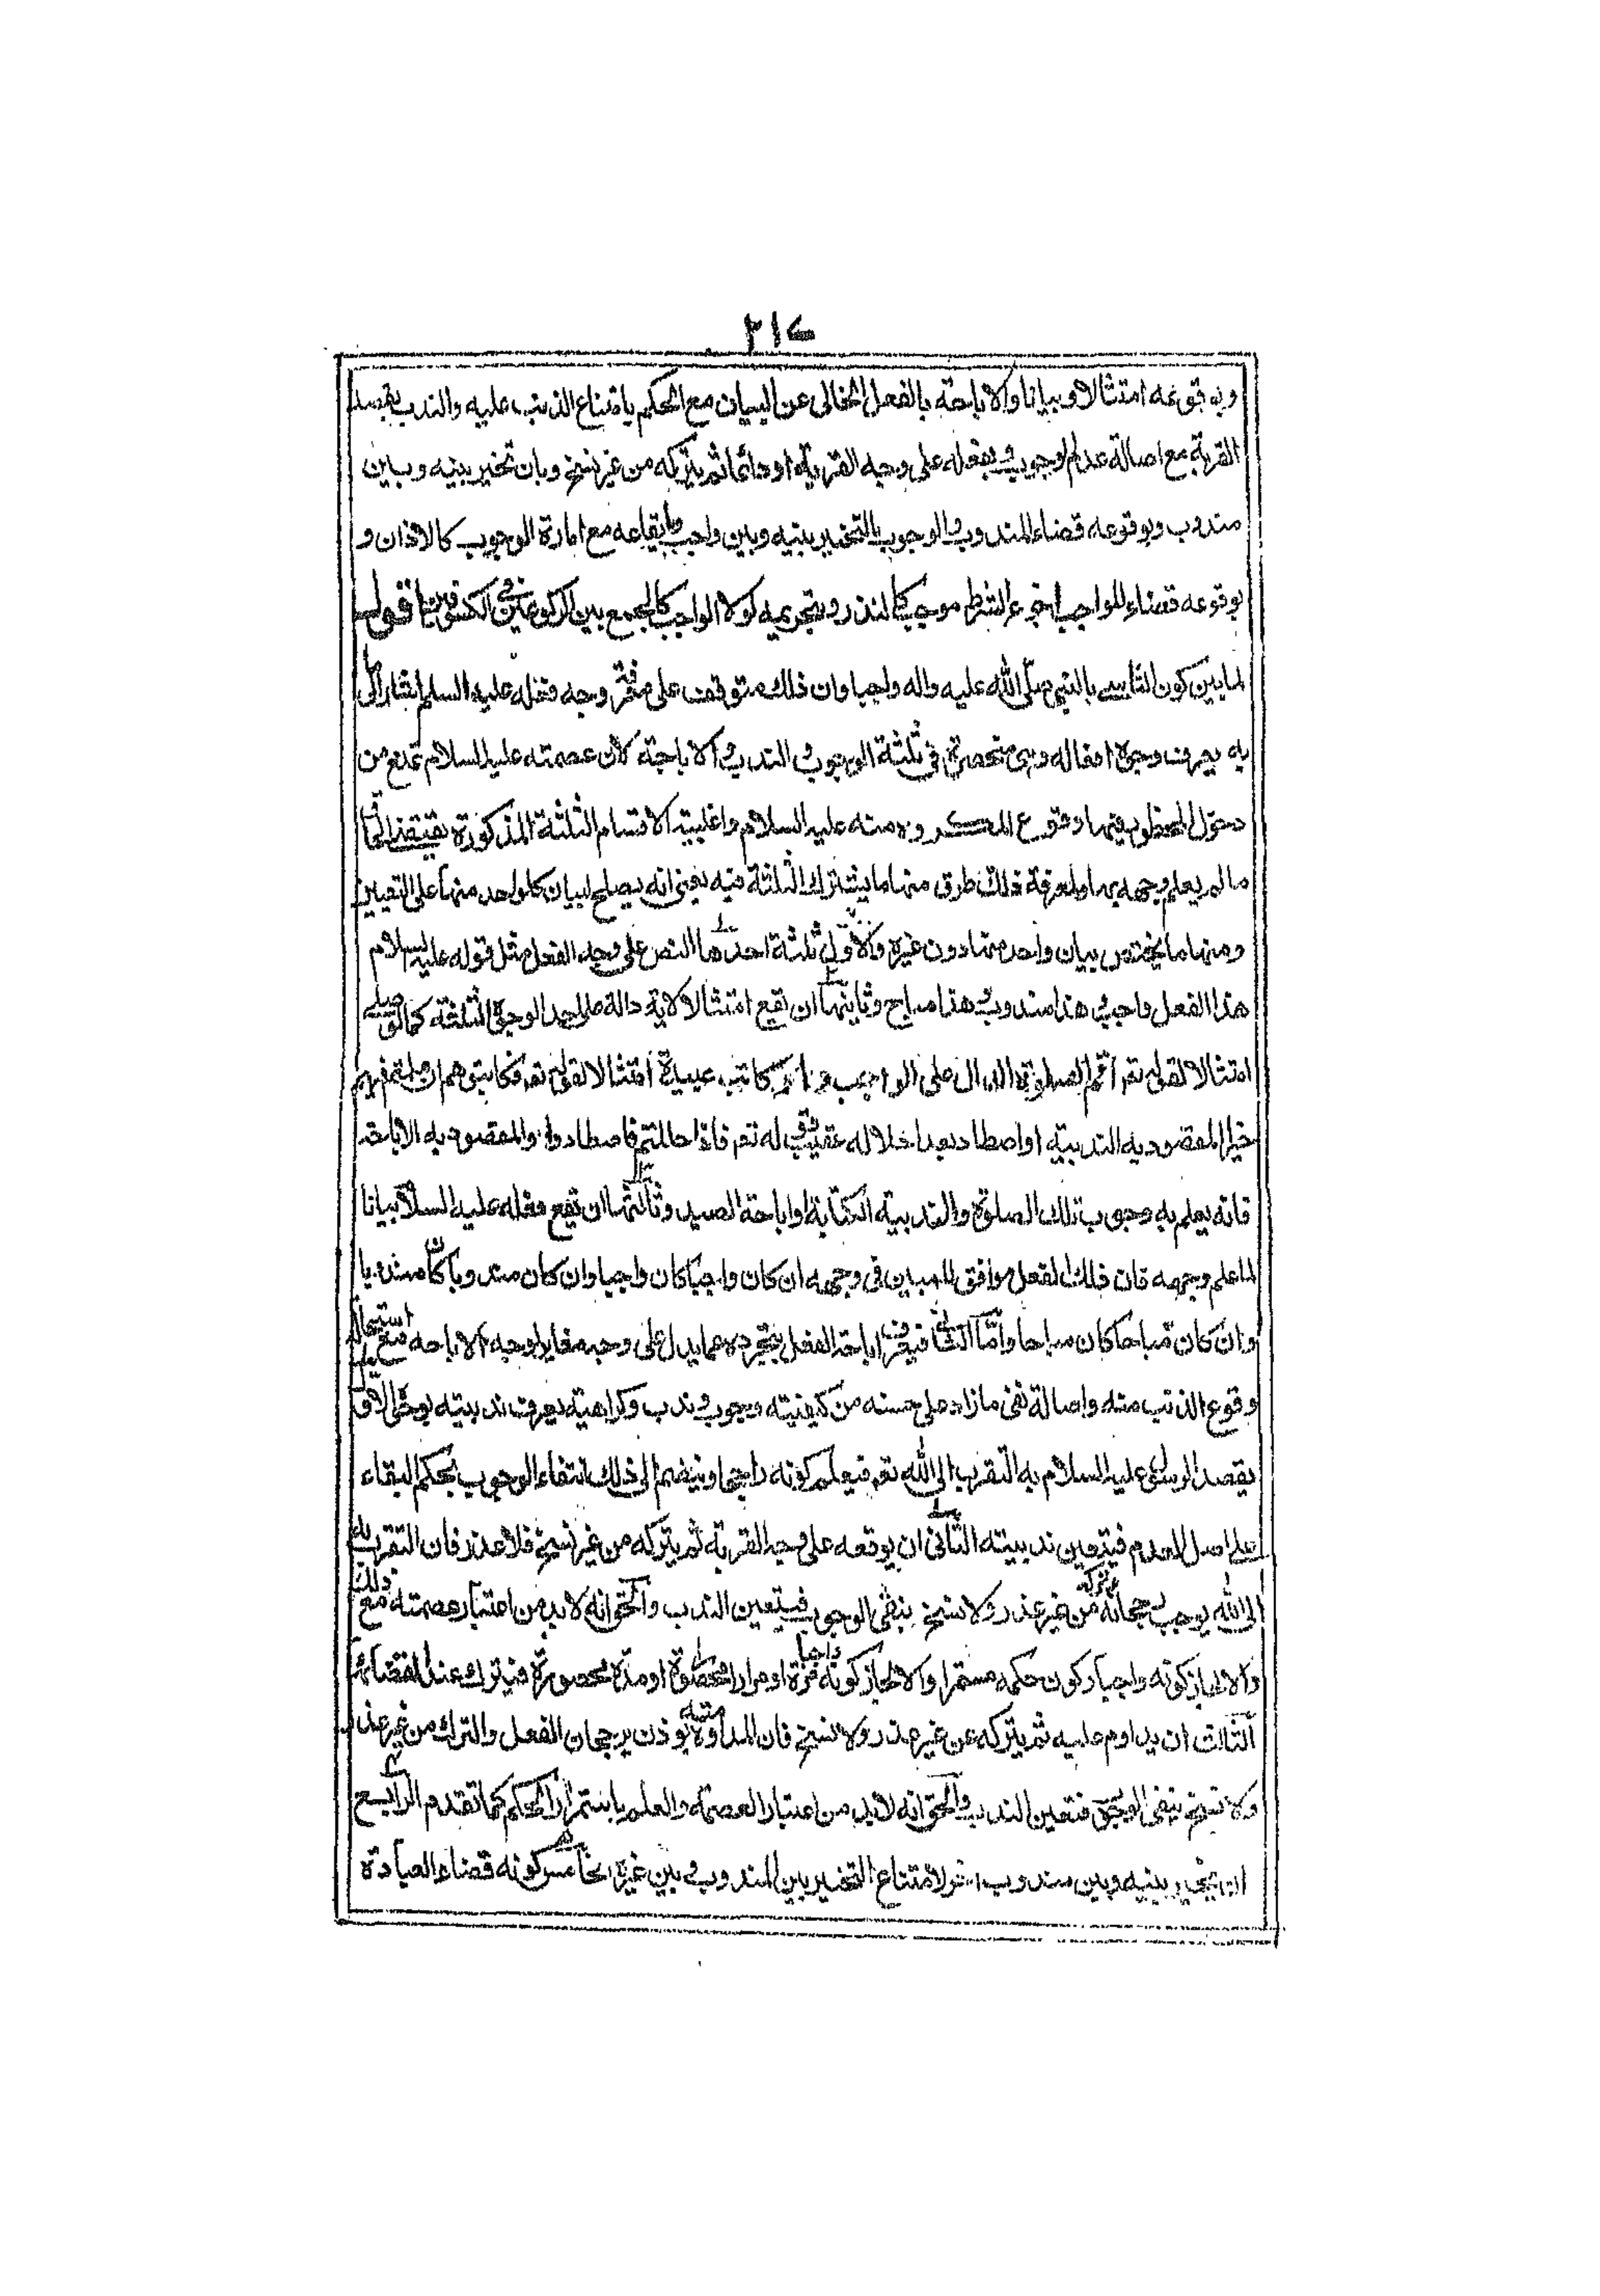 ٢١٤
وبوقوعه امتثالا وبيانا والاباحة بالفعل الخالى عن البيان مع الحكم بامتناع الذنب عليه والندب بقصد
القربة مع اصالة عدم الوجوب وبفعله على وجه القربة او دائما ثم يتركه من غير نسخ وبان تخير بينه وبين
مندوب وبوقوعه قضاء المندوب والوجوب بالتخيير بينه وبين واجب وايقاعه مع امارة الوجوب كالاذان و
بوقوعه قضاء للواجب الشرط موجب كالنذر وبتحريمه لولا الواجب كالجمع بين الركوعين فى الكسوفين اقول
لما بين كون التاسى بالنبى صلى الله عليه واله واجبا وان ذلك متوقف على معرفة وجه فعله عليه السلم اشار الى ما
به يعرف وجوه افعاله وهى منحصرة فى ثلثة الوجوب والندب والاباحة لان عصمته عليه السلام تمنع من
دخول المحظور فيها ووقوع المكروه منه عليه السلام واغلبية الاقسام الثلثة المذكورة
ما لم يعلم وجهه بها ولمعرفة ذلك طرق منها ما يشترك الثلثة فيه يعنى انه يصلح لبيان كل واحد منها على التعيين
ومنها ما يختص ببيان واحد منها دون غيره والاول ثلثة احدها النص على وجه الفعل مثل قوله عليه السلام
هذا الفعل واجب وهذا مندوب وهذا مباح وثانيها ان يقع امتثالا لاية دالة على احد الوجوه الثلثة كما لو صلى
امتثالا لقوله تعم اقم الصلوة الدال على الواجب و كاتب عبده امتثالا لقوله تعم فكاتبوهم ان علمتم فيهم
خيرا المقصود به الندبية او اصطاد بعد احلاله عقيب قوله تعم فاذا حللتم فاصطادوا والمقصود به الاباحة
فانه يعلم به وجوب تلك الصلوة والندبية الكتابة واباحة الصيد وثالثها ان يقع فعله عليه السلام بيانا
لما علم وجهه فان ذلك الفعل موافق للمبين فى وجهه ان كان واجبا كان واجبا وان كان مندوبا كان مندوبا
وان كان مباحا كان مباحا واما الثانى فيعرف اباحة الفعل بتجرده عما يدل على وجه مغاير لوجه الاباحه مع استحالة
وقوع الذنب منه واصالة نفى ما زاد على حسنه من كيفيته وجوب وندب وكراهية يعرف ندبيته بوجوه الاول
بقصد الرسول عليه السلام به التقرب الى الله تعم فيعلم كونه راجحا وينضم الى ذلك انتفاء الوجوب بحكم البقاء
على اصل العدم فيتعين ندبيته الثانى ان يوقعه على وجه القربة ثم يتركه من غير نسخ فلا عذر فان التقرب به
الى الله يوجب رجحانه وتركه من غير عذر ولا نسخ ينفى الوجوب فيتعين الندب والحق انه لابد من اعتبار عصمته مع ذلك
والا لجاز كونه واجبا وكون حكمه مستمرا والا لجاز كونه واجبا مرة او مرارا محصورة او مدة محصورة فيترك عند انقضائه
الثالث ان يداوم عليه ثم يتركه من غير عذر ولا نسخ فان المداومة منه يوذن برجحان الفعل والترك من غير عذر
ولا نسخ ينفى الوجوب فتعين الندب والحق انه لابد من اعتبار العصمة والعلم باستمرار الحكم كما تقدم الرابع
ان يخير بينه وبين مندوب اخر لامتناع التخيير بين المندوب وبين غيره الخامس كونه قضاء العبادة